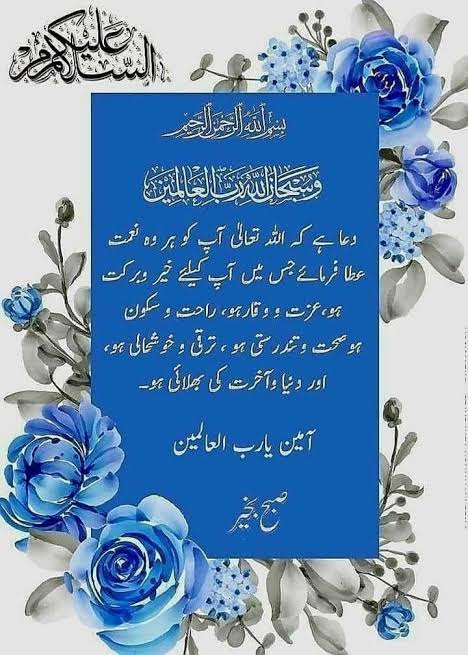 السلام علیکم
بسم الله الرحمن الرحيم
وسبحان الله رب العالمين
دعا ہے کہ اللہ تعالیٰ آپ کو ہر وہ نعمت
عطا فرمائے جس میں آپ کیلئے خیر وبرکت
ہو، عزت و وقار ہو، راحت و سکون
ہو صحت و تندرستی ہو ، ترقی و خوشحالی ہو،
اور دنیا وآخرت کی بھلائی ہو۔
آمین یارب العالمین
صبح بخیر